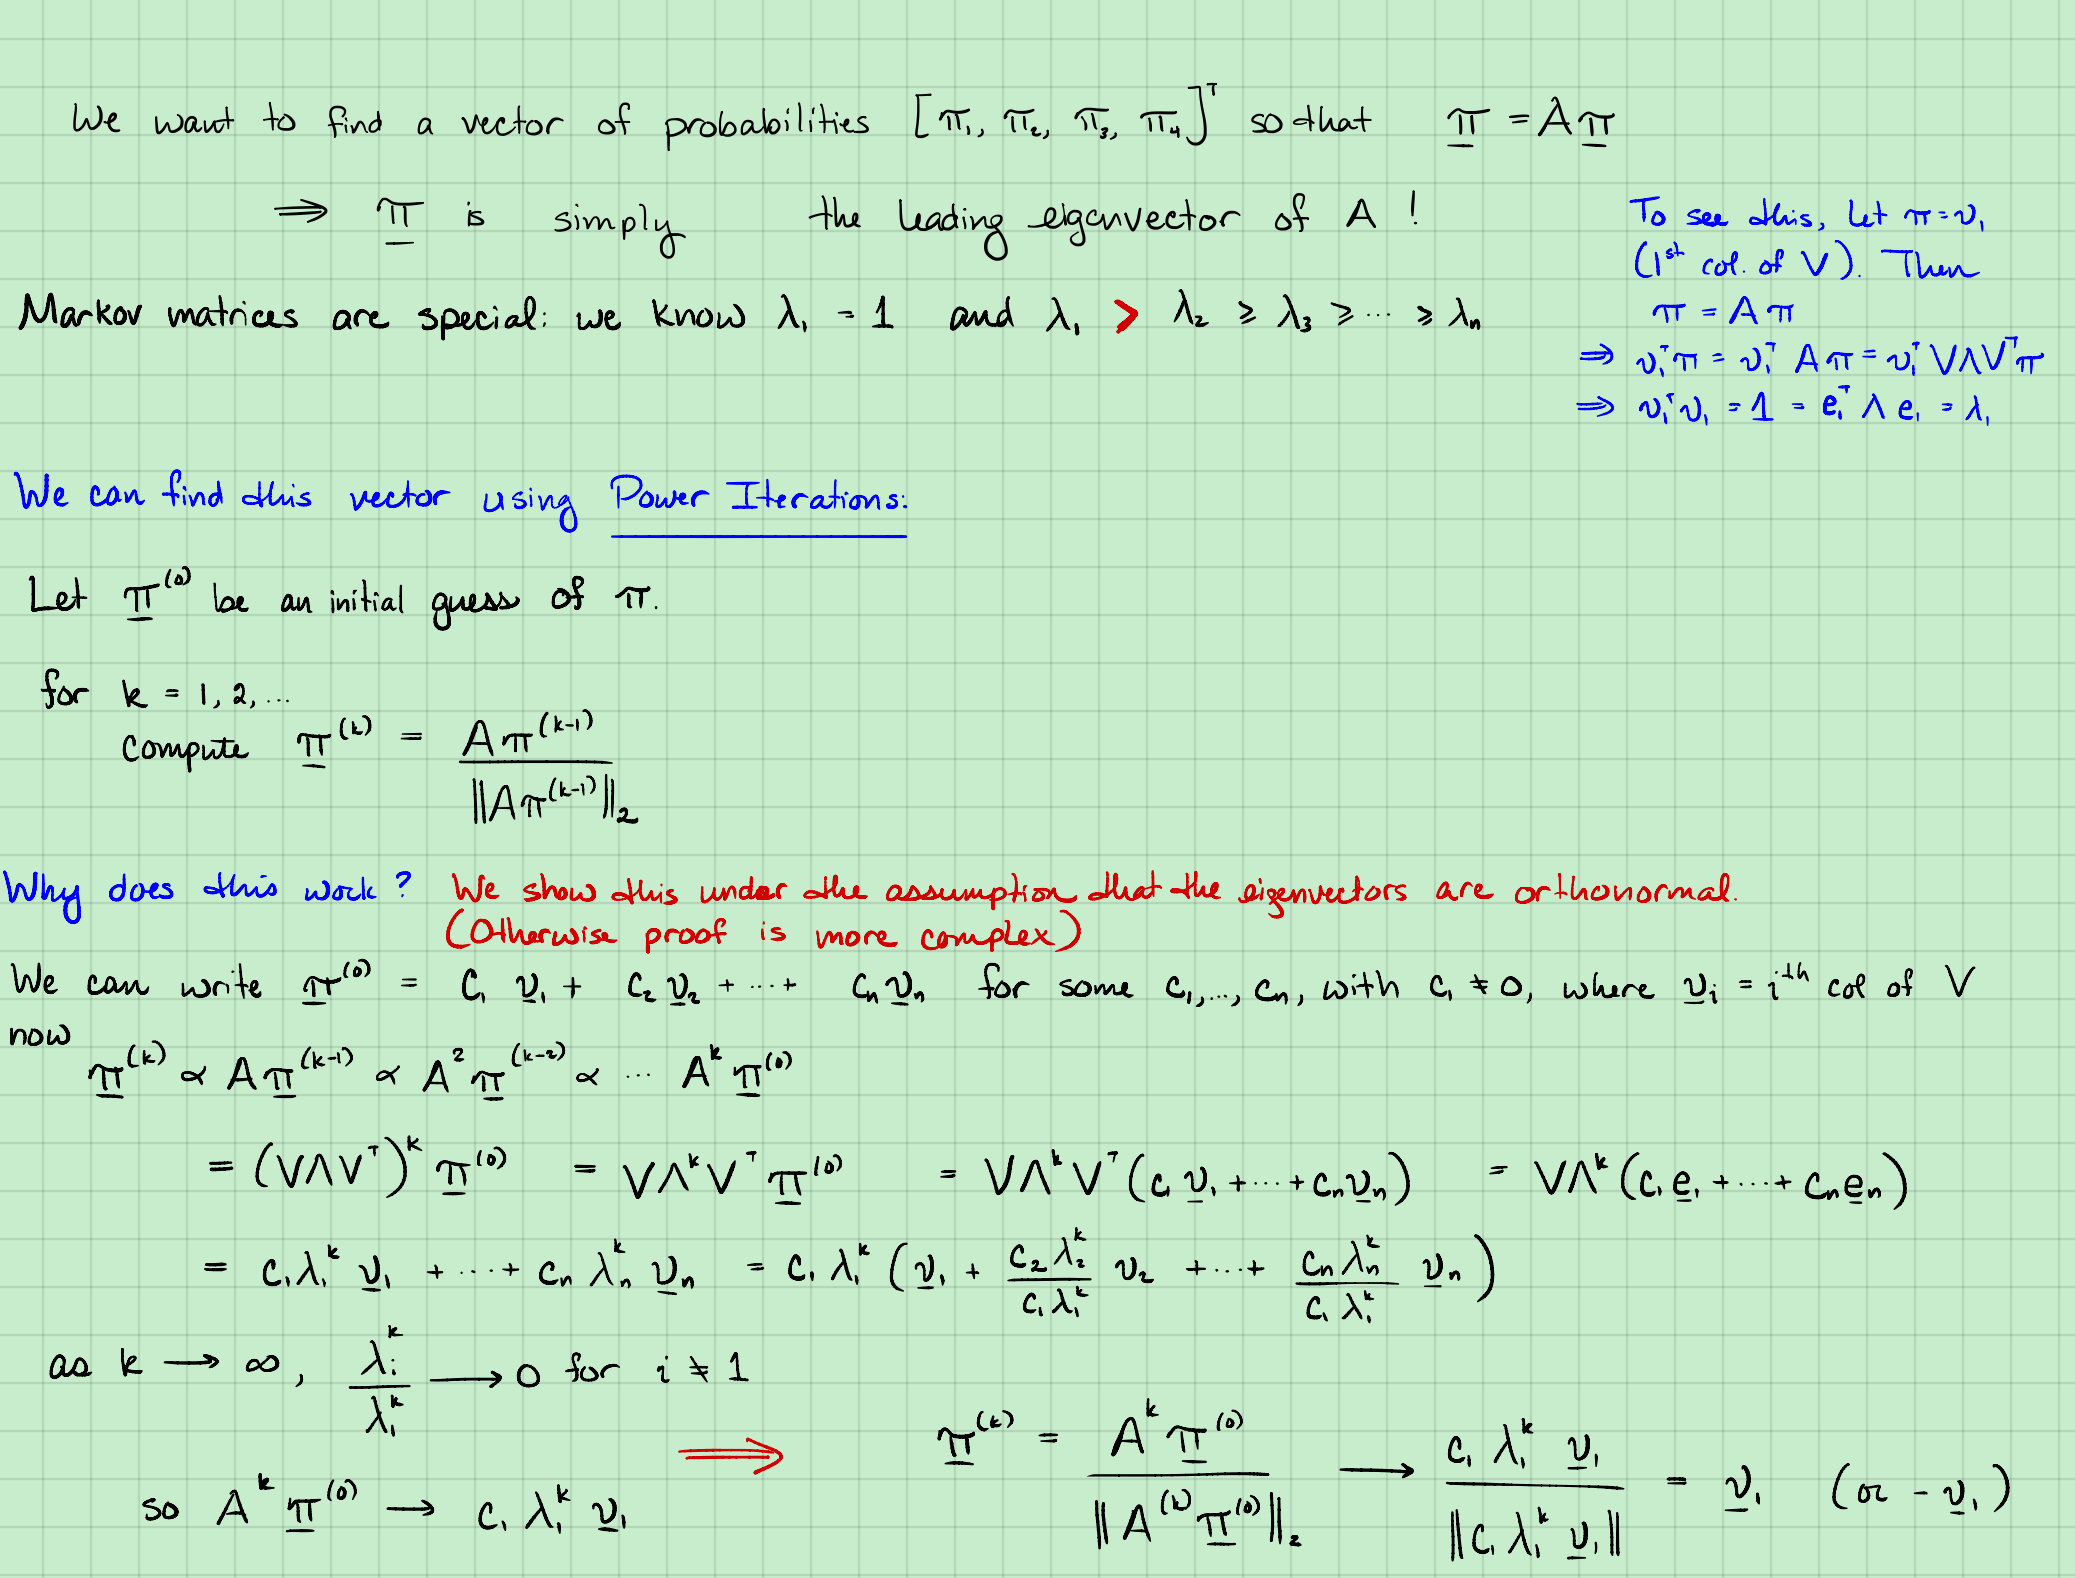 We want to find a vector of probabilities [π₁, π₂, π₃, π₄]ᵀ so that π = Aπ
⟹ π is simply the leading eigenvector of A !
To see this, let π = v₁
(1ˢᵗ col. of V). Then
π = Aπ
⟹ v₁ᵀπ = v₁ᵀ A π = v₁ᵀ VΛVᵀπ
⟹ v₁ᵀv₁ = 1 = e₁ᵀ Λ e₁ = λ₁
Markov matrices are special: we know λ₁ = 1 and λ₁ > λ₂ ≥ λ₃ ≥ ··· ≥ λₙ
We can find this vector using Power Iterations:
Let π⁽⁰⁾ be an initial guess of π.
for k = 1, 2, ...
compute π⁽ᵏ⁾ = Aπ⁽ᵏ⁻¹⁾ / ‖Aπ⁽ᵏ⁻¹⁾‖₂
Why does this work? We show this under the assumption that the eigenvectors are orthonormal.
(Otherwise proof is more complex)
We can write π⁽⁰⁾ = c₁ v₁ + c₂ v₂ + ··· + cₙ vₙ for some c₁,..., cₙ, with c₁ ≠ 0, where vᵢ = iᵗʰ col of V
now
π⁽ᵏ⁾ ∝ Aπ⁽ᵏ⁻¹⁾ ∝ A²π⁽ᵏ⁻²⁾ ∝ ··· Aᵏ π⁽⁰⁾
= (VΛVᵀ)ᵏ π⁽⁰⁾ = VΛᵏVᵀ π⁽⁰⁾ = VΛᵏVᵀ(c₁ v₁ + ··· + cₙvₙ) = VΛᵏ(c₁e₁ + ··· + cₙeₙ)
= c₁λ₁ᵏ v₁ + ··· + cₙ λₙᵏ vₙ = c₁ λ₁ᵏ (v₁ + c₂λ₂ᵏ / c₁λ₁ᵏ v₂ + ··· + cₙλₙᵏ / c₁λ₁ᵏ vₙ)
as k → ∞, λᵢᵏ / λ₁ᵏ → 0 for i ≠ 1
so Aᵏ π⁽⁰⁾ → c₁ λ₁ᵏ v₁
⟹ π⁽ᵏ⁾ = Aᵏ π⁽⁰⁾ / ‖A⁽ᵏ⁾π⁽⁰⁾‖₂ → c₁ λ₁ᵏ v₁ / ‖c₁ λ₁ᵏ v₁‖ = v₁ (or - v₁)